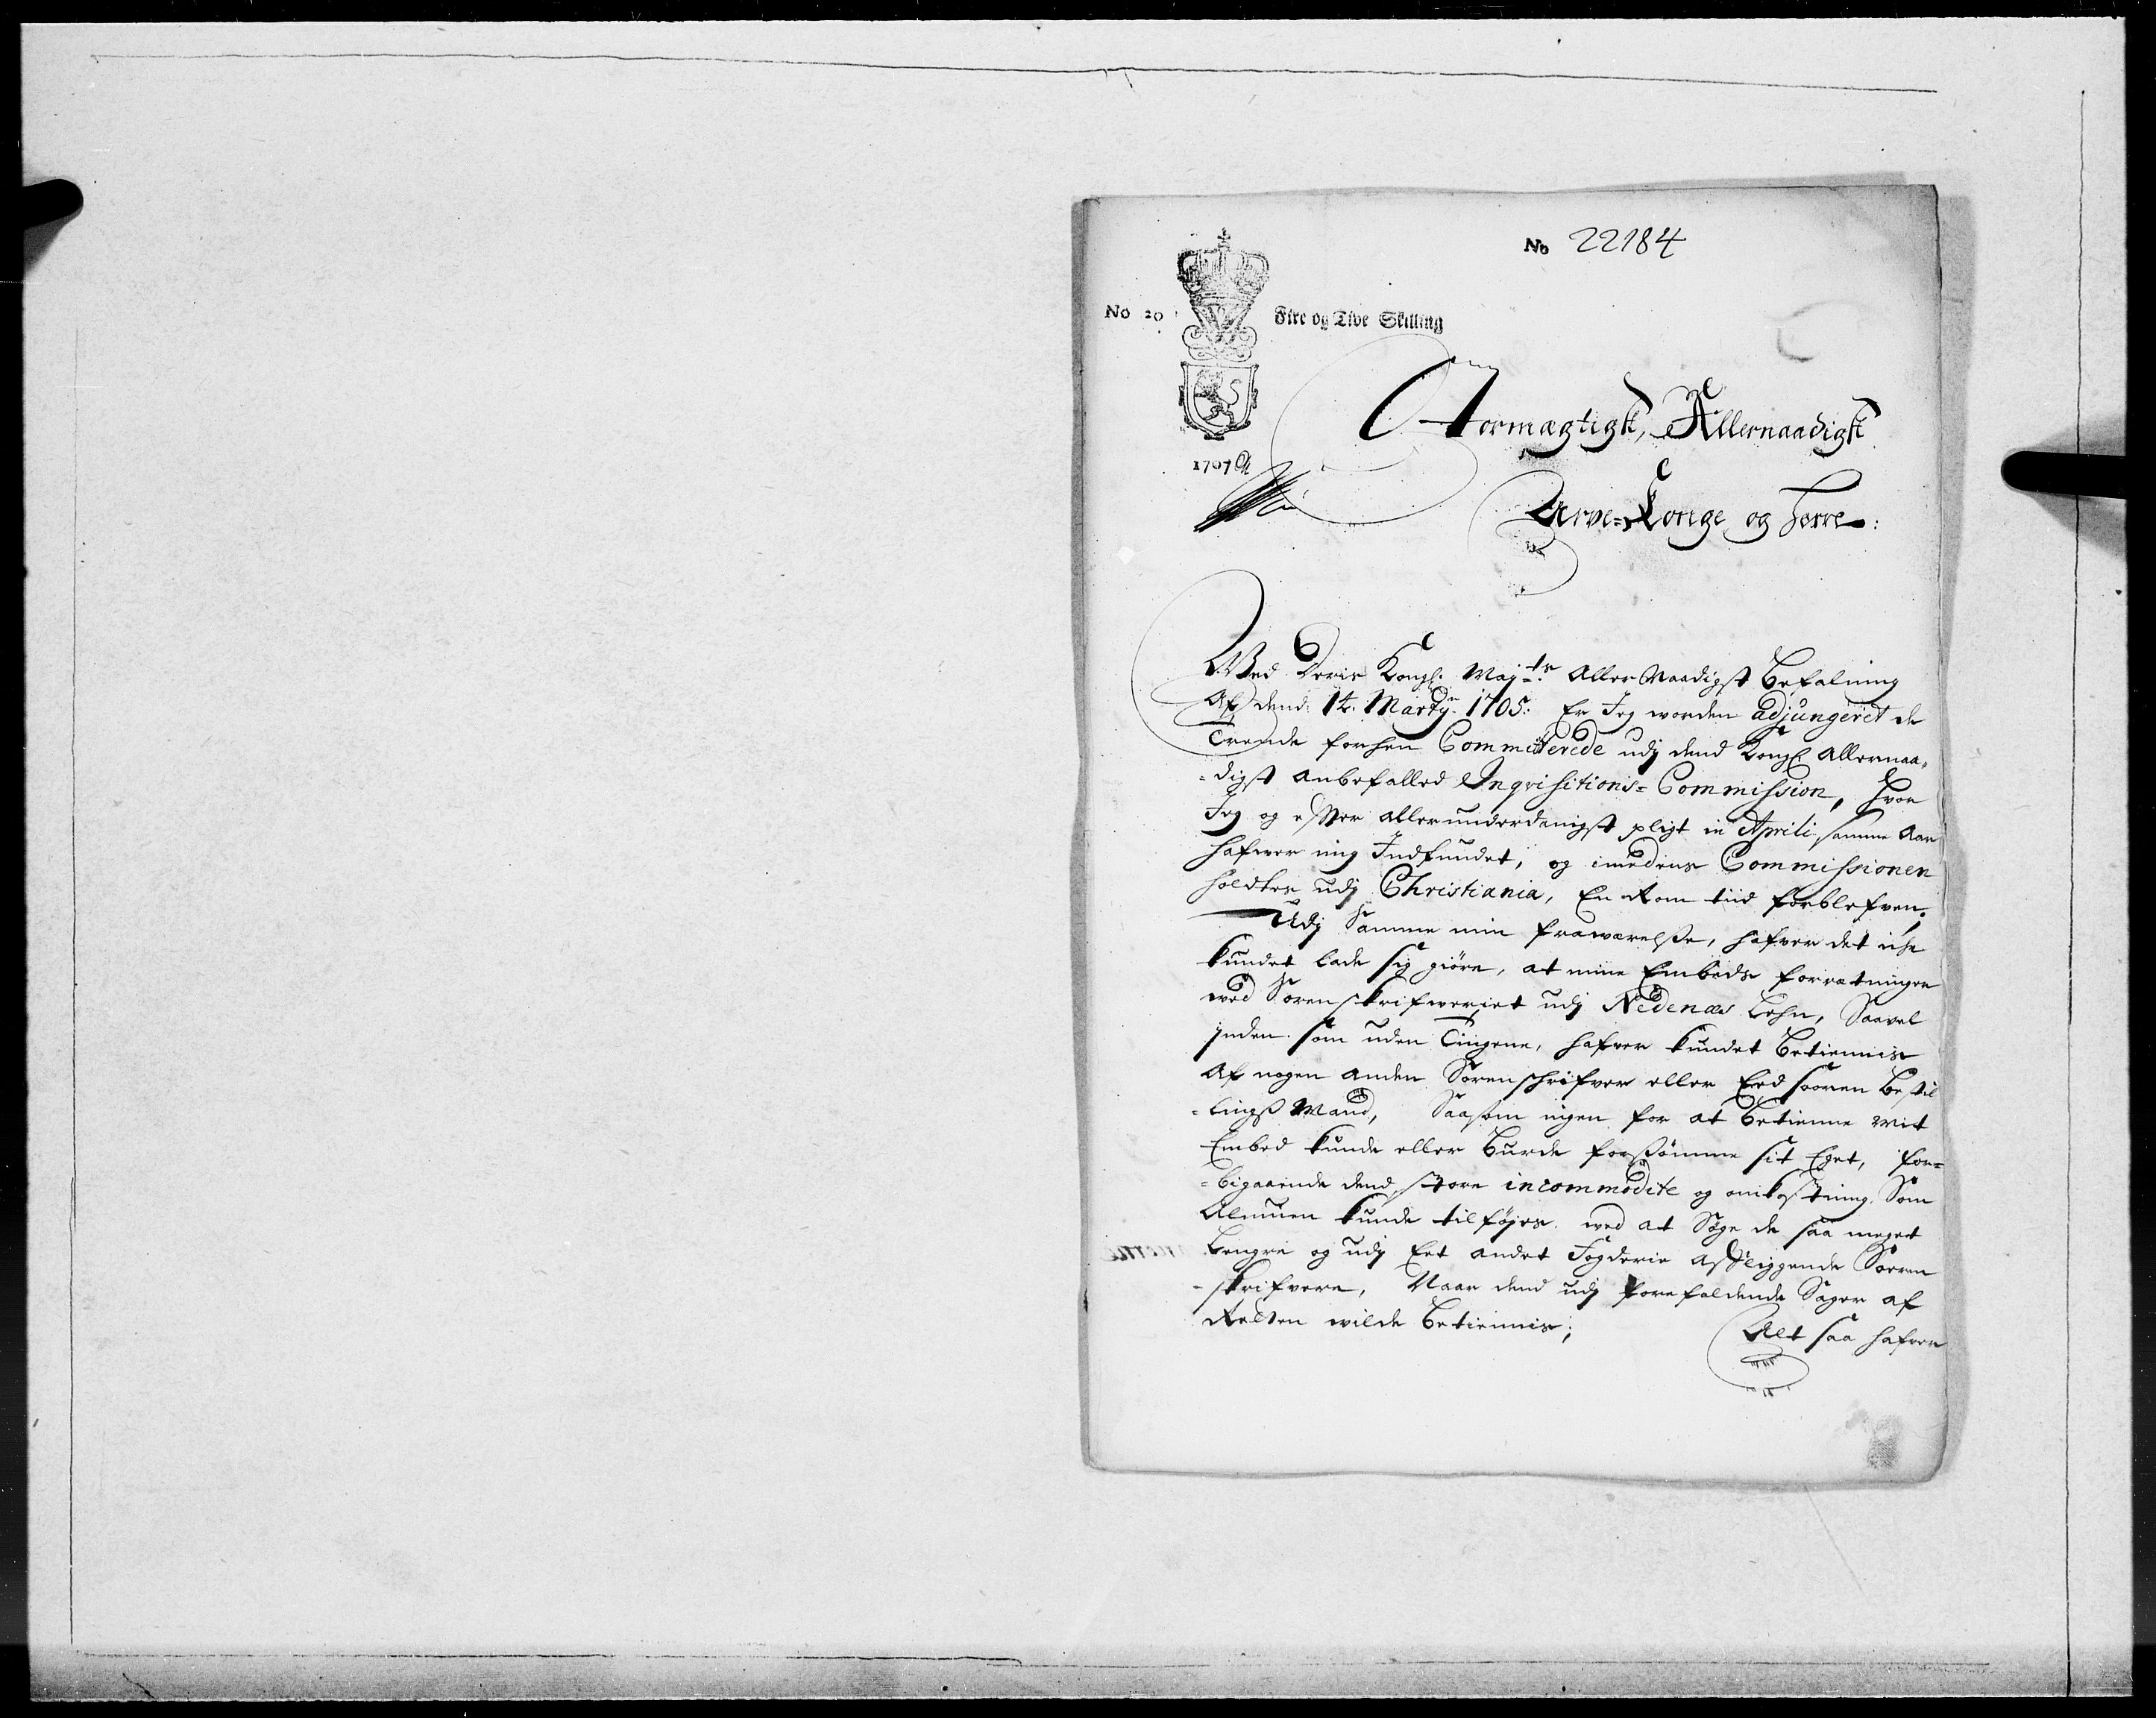 No 22184
No 20 Fire og Tive Skilling
1707
Stormægtigst, Allernaadigst
Arve-Konge og Herre:
Ved Deris Kongl. Maj:ts Aller Naadigst Befalning
Af dend 14. Marty 1705. Er Jeg worden adjungerit de
Trende forhen Committerede udj dend Kongl. Allernaa-
-digst anbefalled Inqvisitions-Commission, hvor
Jeg og efter allerunderdanigst pligt in Aprili samme Aar
hafver mig Indfundet, og imedens Commissionen
holdtes udj Christiania, En Rom tiid forblefven.
Udj Samme min fraværelse, hafver det iche
kundet lade sig giøre, at mine Embeds forretninger
ved Sorenskrifveriet udj Nedenæs Lehn, Saavel
Inden som uden Tingene, hafver kundet Betiennis
Af nogen anden Sorenschrifver eller Eed sooren Bestil
-lings Mand, Saasom ingen for at betienne Mit
Embed kunde eller Burde forsømme sit Eget, for-
-bigaaende dend store incommodite og omkostning Som
Almuen kunde tilføjes ved at Søge de saa meget
Lengre og udj Eet andet Fogderie afliggende Soren
-skrifvere, Naar dend udj forefaldende Sager af
Retten wilde betiennis;
Alt saa hafver